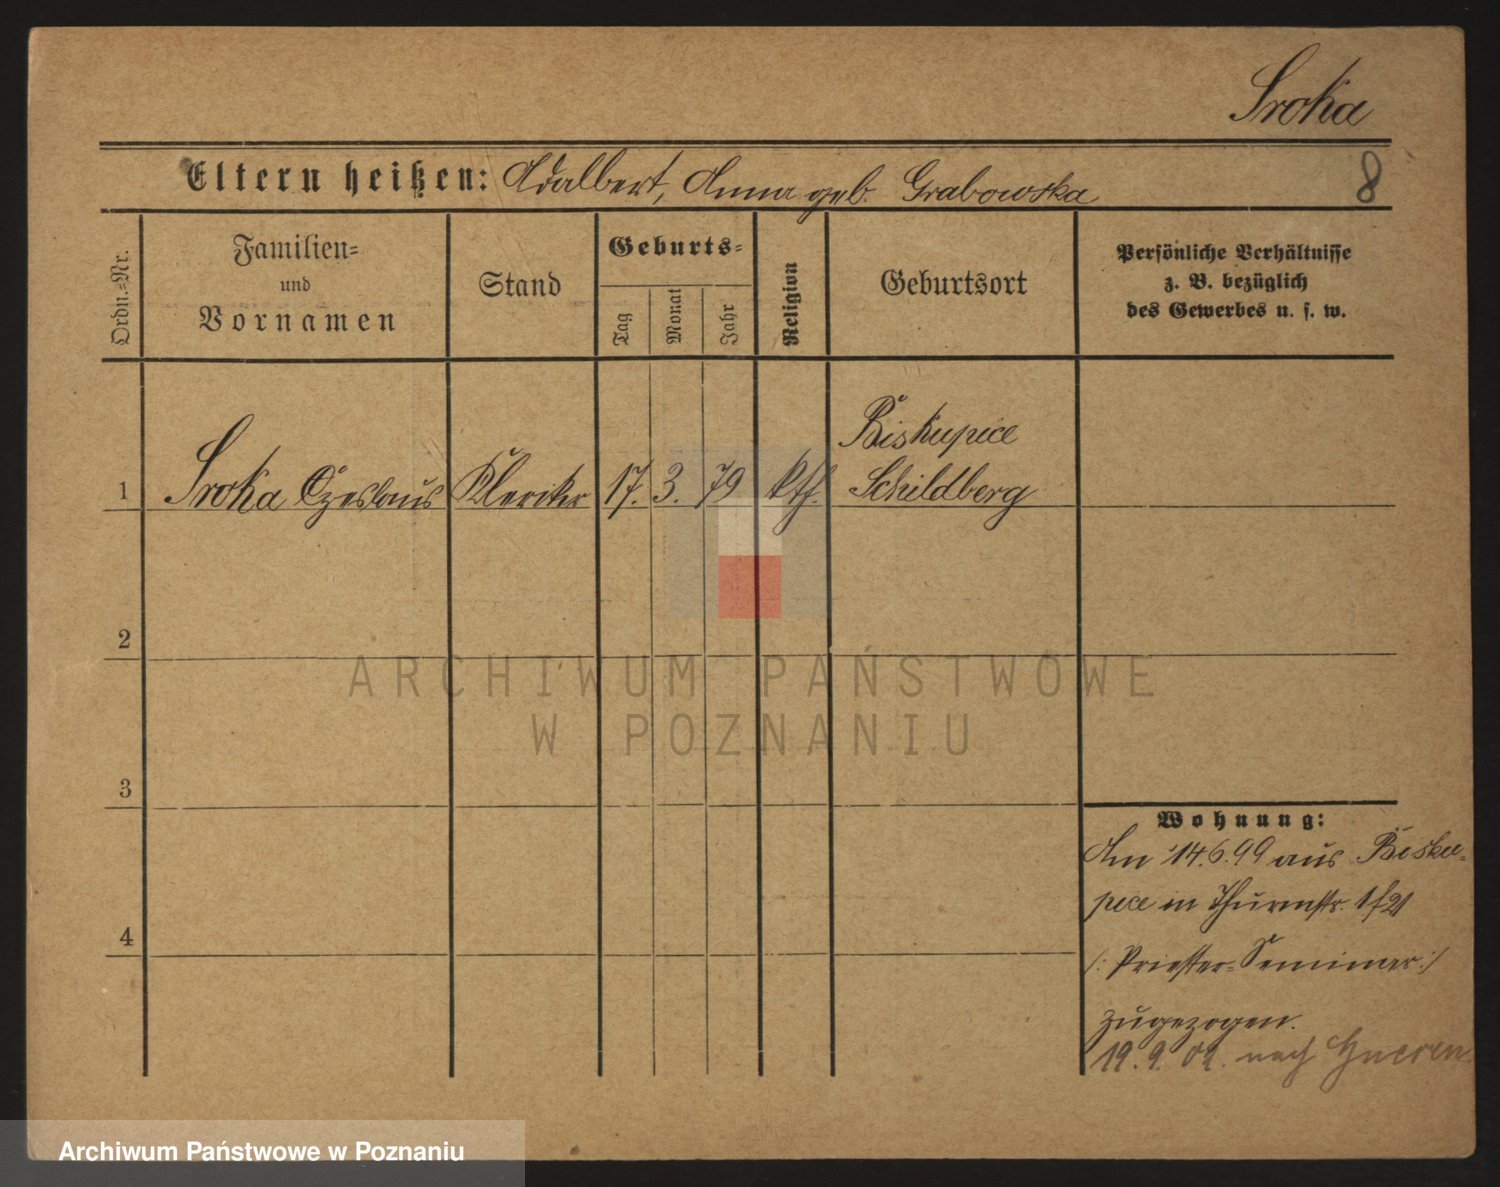 Sroka
Eltern heißen: Adalbert, Anna geb. Grabowska
8
Ordn.-Nr.
Familien-
und
Vornamen
Stand
Geburts-
Tag
Monat
Jahr
Religion
Geburtsort
Persönliche Verhältnisse
z. B. bezüglich
des Gewerbes u. s. w.
Biskupice
1 Sroka Czeslaus Kleriker 17. 3. 79 kth. Schildberg
2
ARCHIWUM PAŃSTWOWE
W POZNANIU
3
Wohnung:
Am 14.6.99 aus Bisku-
pice in Thurmstr. 1/21
/: Priester-Seminar :/
zugezogen.
4
19. 9. 02. nach Gnesen
Archiwum Państwowe w Poznaniu